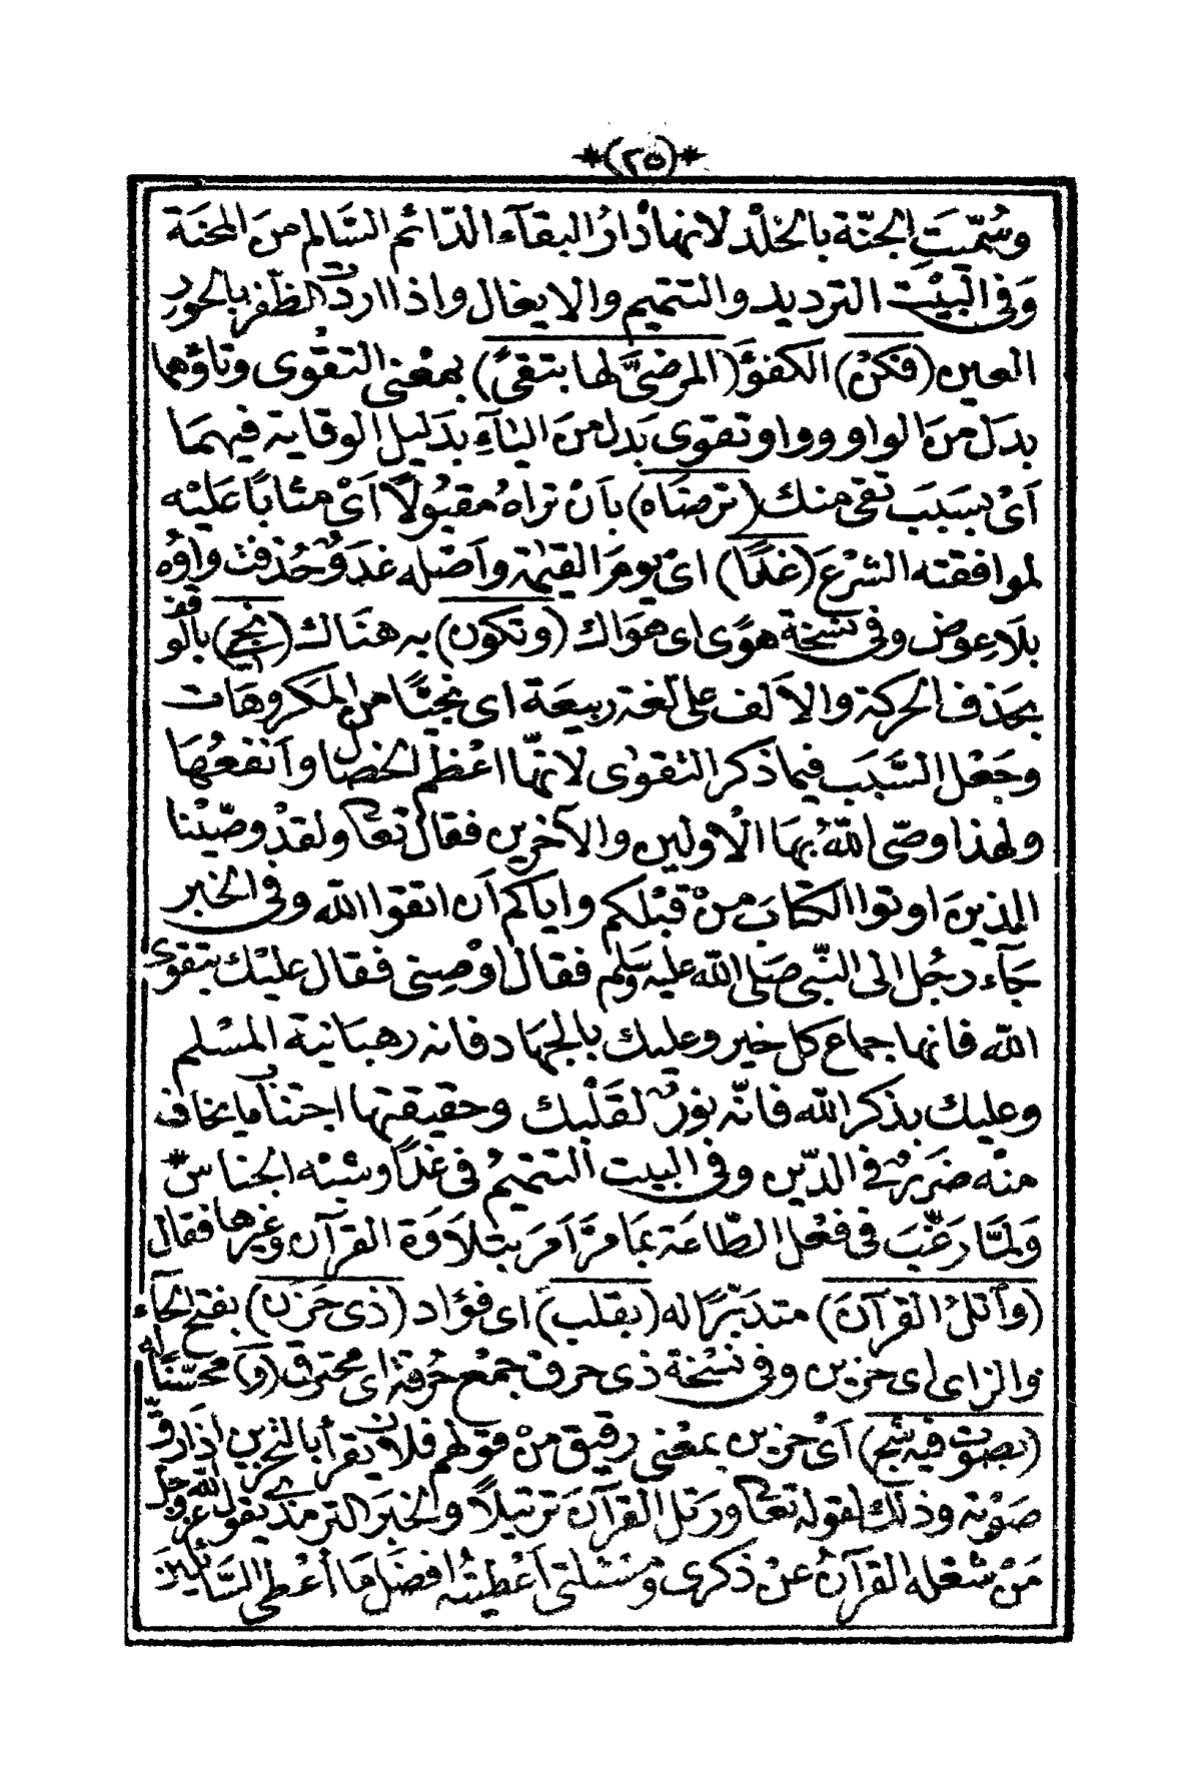 *(٢٥)*
وسُمّيَتِ الجنّة بالخُلْد لانها دارُ البقآء الدّائم السّالم من المحنَة
وَفى البَيْت الترديد والتتميم والايغال واذا اردتَ الظفر بالحور
العين (فكنْ) الكفؤَ (المرضىَّ لها بتقىً) بمعْنى التقْوى وتاؤهما
بدَل منَ الواو وواو تقوى بَدل منَ اليآءِ بدَليل الوقاية فيهمَا
اَىْ بسَبَب تقى منك (ترضاه) باَنْ تراهُ مقبُولاً اَىْ مثابًا عَليْه
لموافقته الشرْعَ (غدًا) اىْ يومَ القيٰمة واَصْله غدَوٌ حُذفتْ واوُه
بلاَعِوض وفى نسْخة هوًى اى هوَاك (وتكون) به هنَاك (نجى) بالوقف
بحَذف الحركة والاَلف على لغة ربيعَة اى نجيًّا من المكروهَات
وجَعْل السَّبَب فيما ذكر التقوٰى لانّها اعْظم الخصَال واَنفعُهَا
ولهذا وصّى اللّٰهُ بهَا الْاولين والآخرين فقال تعالى ولقدْ وصّيْنا
الذينَ اوتوا الكتابَ منْ قبْلكم واياكم اَن اتقوا اللّه وفى الخبر
جَآء رجُل الى النّبى صَلى اللّه عليه وسَلم فقال اوْصِنى فقال عليْك بتقوى
اللّه فانها جماع كل خير وعليك بالجهَاد فانه رهبَانية المسْلم
وعليك بذكر اللّه فانّه نورٌ لقَلْبك وحقيقتها اجتناب ما يخاف
منْه ضَررٌ فى الدّين وفى البيت التتميُم فى غدًا وشبْه الجناس *
وَلمّا رَغّبَ فى فعْل الطّاعَة بمَا مرَّ اَمرَ بتلاَوَة القرآن وغيرها فقال
(وَاتلُ القرآنَ) متدَبّرًا له (بقلب) اى فؤاد (ذى حَزَن) بفتح الحآء
والزاى اى حزين وفى نسْخة ذى حرق جمْع حُرقة اى محترق (و) محسّنًا له
(بصَوْت فيه شج) اَىْ حزين بمعْنى رقيق منْ قولهم فلانٌ يقرأ بالتحزين اذَا رقّ
صَوْته وذلك لقوله تعالى ورتل القرآنَ ترتيلاً والخبَر الترمذى يقول اللّه عزّ وجل
مَنْ شغله القرآنُ عنْ ذكرى ومسْئلتى اَعْطيتُه افضَل مَا اُعْطى السَّائلينَ